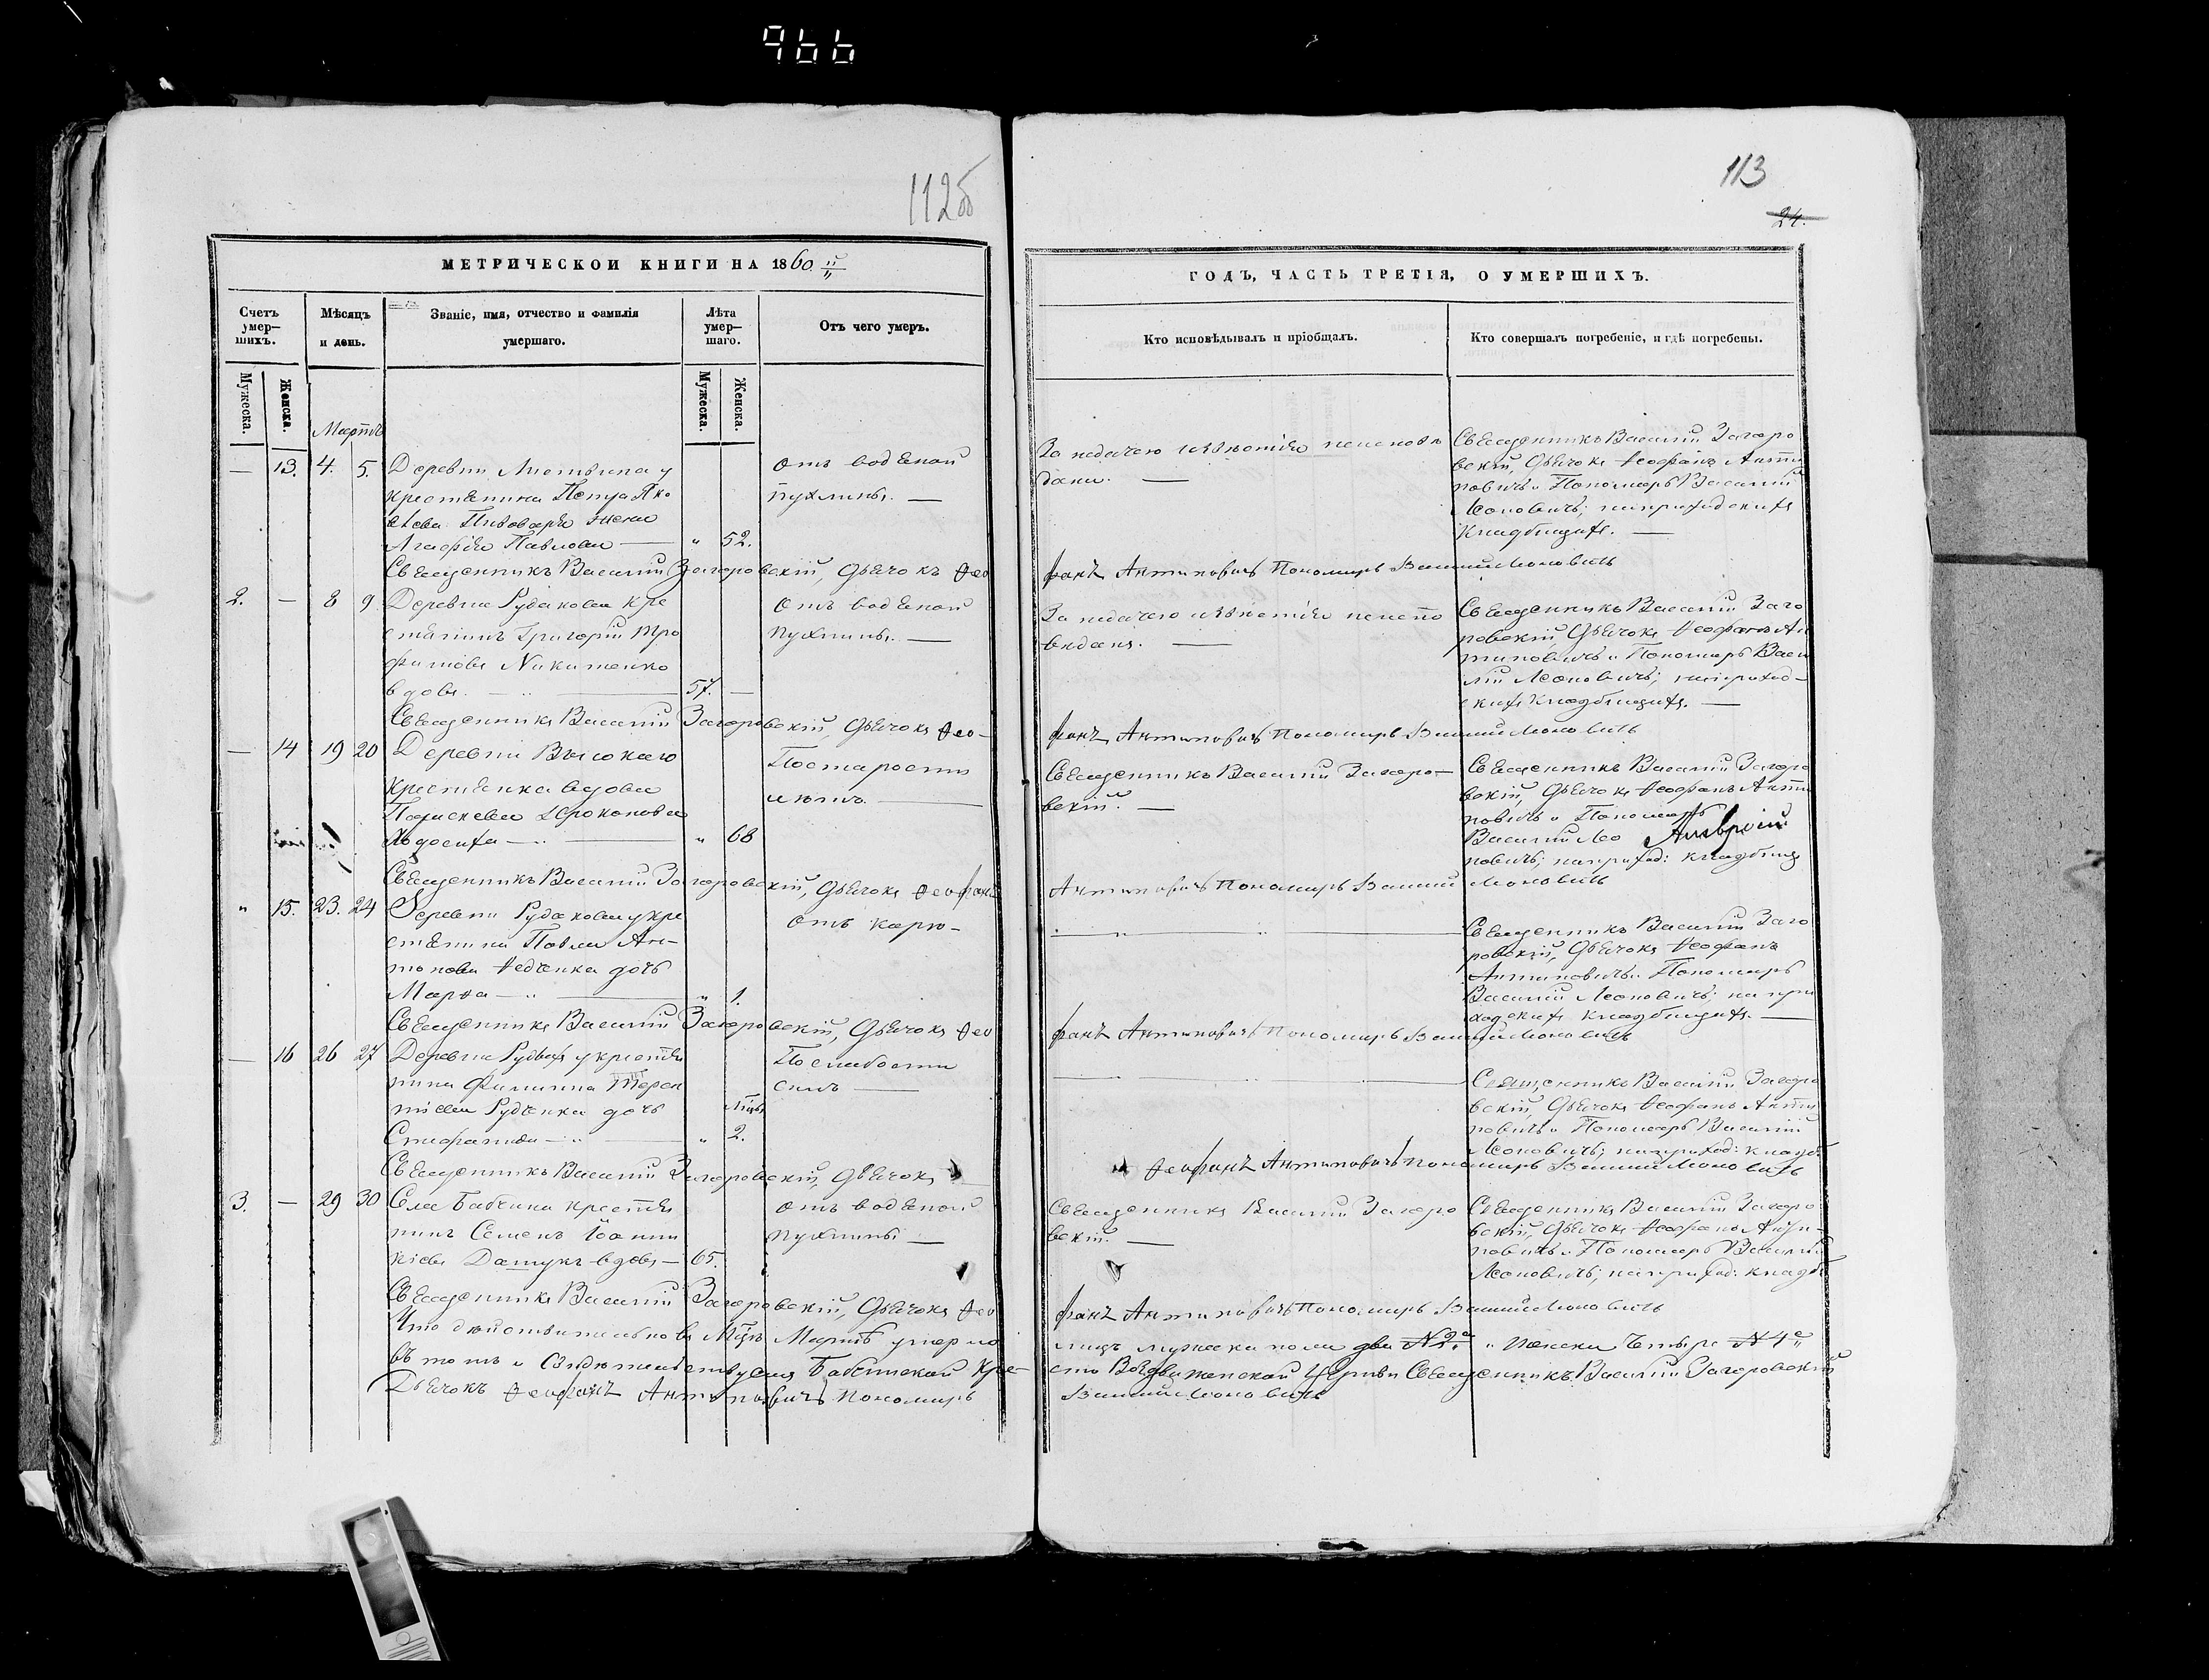 966
112об
113
24.
МЕТРИЧЕСКОЙ КНИГИ НА 1860
ГОДЪ, ЧАСТЬ ТРЕТІЯ, О УМЕРШИХЪ.
Счетъ умер-
шихъ.
Мѣсяцъ
и день.
Званіе, имя, отчество и фамилія
умершаго.
Лѣта
умер-
шаго.
Отъ чего умеръ.
Кто исповѣдывалъ и пріобщалъ.
Кто совершалъ погребеніе, и гдѣ погребены.
Мужеска.
Женска.
Мужеска.
Женска.
Мартъ
— 13. 4. 5. Деревни
крестянина Петра Яко
влева Пивоваря жена
Агафія Павлова — " 52.
отъ водяной
пухлины. —
За недачею извѣстія неиспов
дани. —
Священникъ Василій Загоро
вскій, Дьячокъ Ѳеофанъ Анти
повичъ и Пономарь Василій
Леоновичъ; на приходскихъ
кладбищахъ. —
Священникъ Василій Загоровскій, Дьячокъ Ѳео
фанъ Антиповичъ Пономарь Василий Леоновичъ
2. — 8 9. Деревни Рудакова кре
стянинъ Григорій Тро
фимовъ Никитенко
вдовъ. — " — 57. —
отъ водяной
пухлины. —
За недачею извѣстія неиспо
виданъ. —
Священникъ Василій Заго
ровскій, Дьячокъ Ѳеофанъ Ан
типовичъ и Пономарь Васи
лій Леоновичъ; на приход-
скихъ кладбищахъ. —
Священникъ Василій Загоровскій, Дьячокъ Ѳео-
фанъ Антиповичъ Пономарь Василий Леоновичъ
— 14 19 20 Деревни Высокаго
крестянка вдова
Параскева Прокопова
— " — " 68
По старости
лѣтъ. —
Священникъ Василій Загоро-
вскій. —
Священникъ Василій Загоро
вскій, Дьячокъ Ѳеофанъ Анти
повичъ и Пономарь
Василій Лео
новичъ; на приход: кладбищ
Священникъ Василій Загоровскій, Дьячокъ Ѳеофанъ
Антиповичъ Пономарь Василий Леоновичъ
" 15. 23. 24 Деревни Рудакова у кре
стянина Павла Ан-
тонова Ѳедченка дочь
Марѳа — " — " 1.
отъ корю-
— " " —
Священникъ Василій Заго
ровскій, Дьячокъ Ѳеофанъ
Антиповичъ и Пономарь
Василій Леоновичъ; на при
ходскихъ кладбищахъ. —
Священникъ Василій Загоровскій, Дьячокъ Ѳео
фанъ Антиповичъ Пономарь Василий Леоновичъ
— 16 26 27 Деревни у крестья
нина Филиппа Терен
тіева Рудченка дочь
— " — " мцъ 2.
По слабости
силъ —
— " " —
Священникъ Василій Загоро
вскій, Дьячокъ Ѳеофанъ Анти
повичъ и Пономарь Василій
Леоновичъ; на приход: кладб
Священникъ Василій Загоровскій, Дьячокъ
Ѳеофанъ Антиповичъ Пономарь Василий Леоновичъ
3. — 29 30 Села Бабчина крестья
нинъ Семенъ Іоанни
кіевъ вдовъ — 65.
отъ водяной
пухлины —
Священникъ Василій Загоро
вскій. —
Священникъ Василій Загоро
вскій, Дьячокъ Ѳеофанъ Анти-
повичъ и Пономарь Василій
Леоновичъ; на приход: кладб
Священникъ Василій Загоровскій, Дьячокъ Ѳео
фанъ Антиповичъ Пономарь Василий Леоновичъ
Что дѣйствительно въ Мцѣ Мартѣ умерло
лицъ мужеска пола два №2е и женска четыре №4е
въ томъ и свидѣтельствуемъ Бабчинской Кре-
сто Воздвиженской Церкви Священникъ Василій Загоровскій
Дьячокъ Ѳеофанъ Антиповичъ Пономарь
Василий Леоновичъ